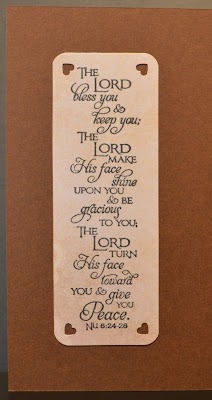 The
Lord
bless you
&
keep you;
The
Lord
make
His face
shine
upon you
& be
gracious
to you;
The
Lord
turn
His face
toward
you & give
you
Peace.
Nu 6:24-26